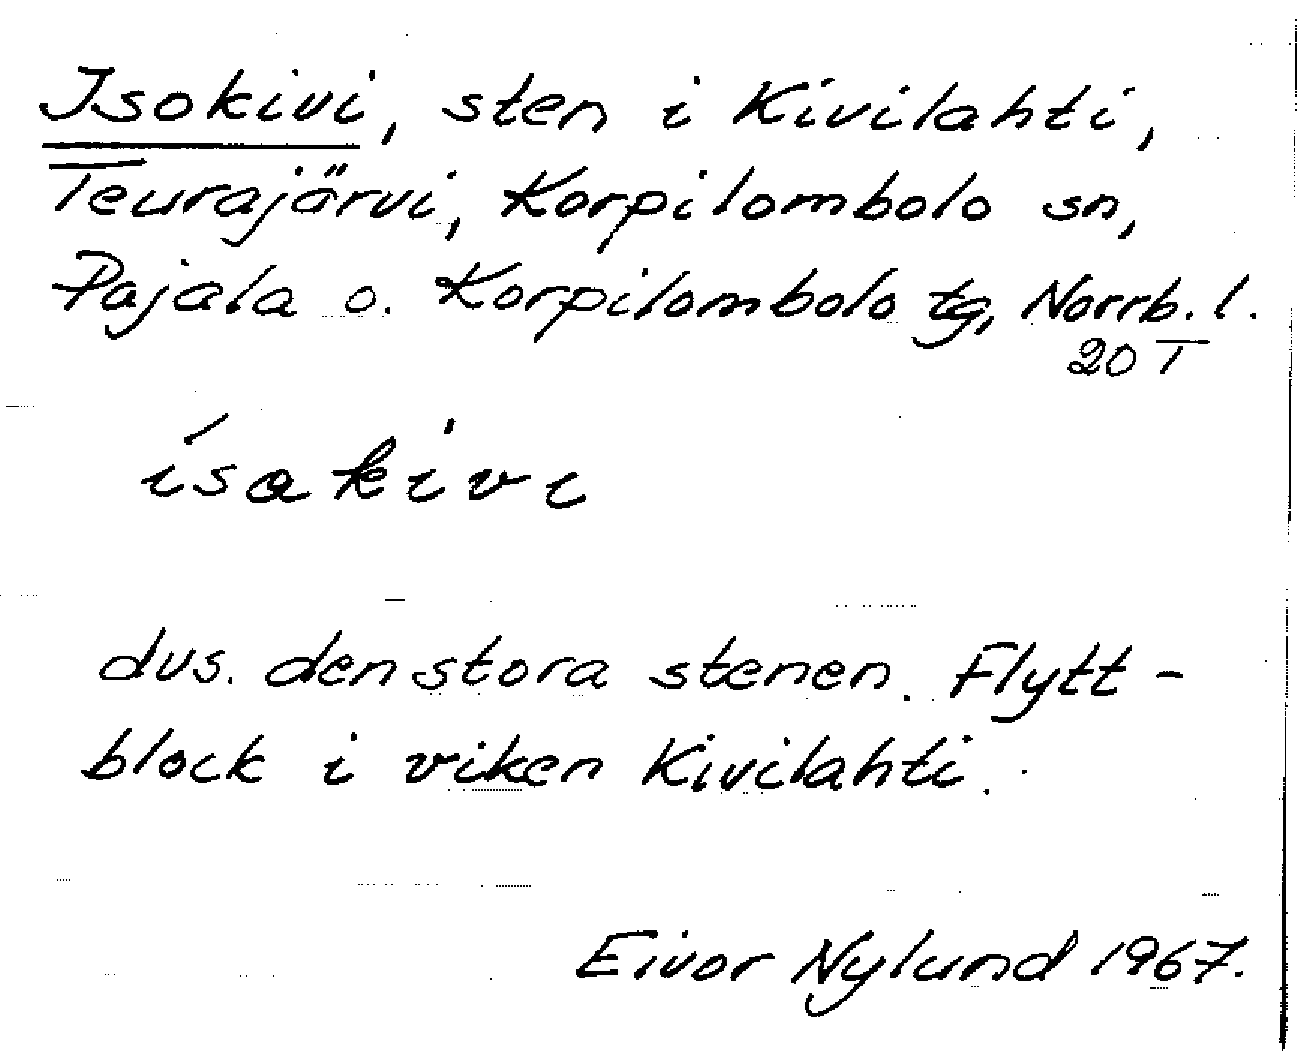 Isokivi, sten i Kivilahti,
Teurajärvi, Korpilombolo sn,
Pajala o. Korpilombolo tg, Norrb. l.
20 I
ísakivi
dvs. den stora stenen. Flytt-
block i viken Kivilahti.
Eivor Nylund 1967.